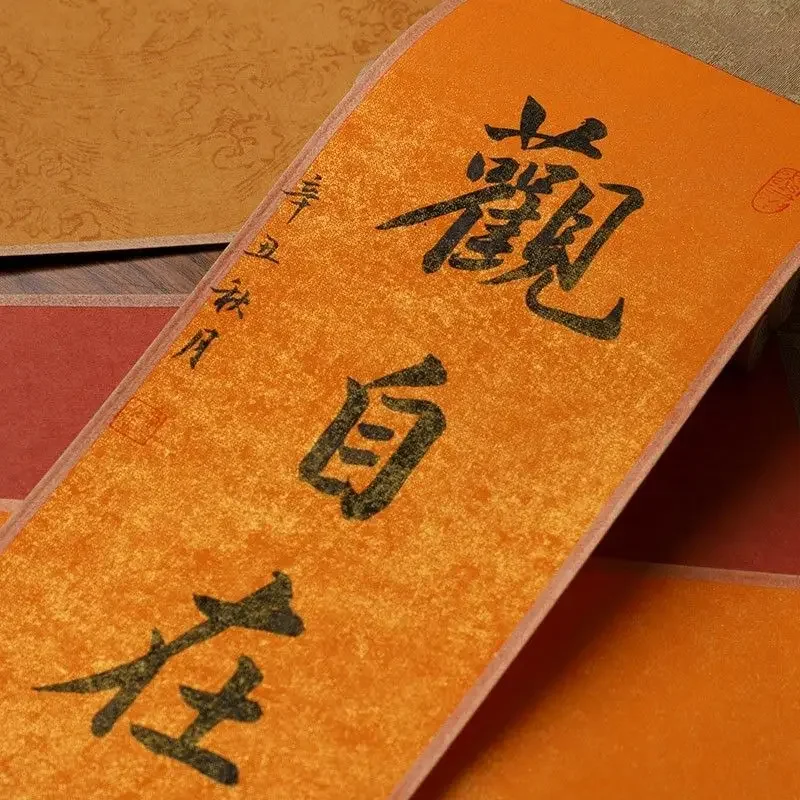 觀自在
辛丑秋月